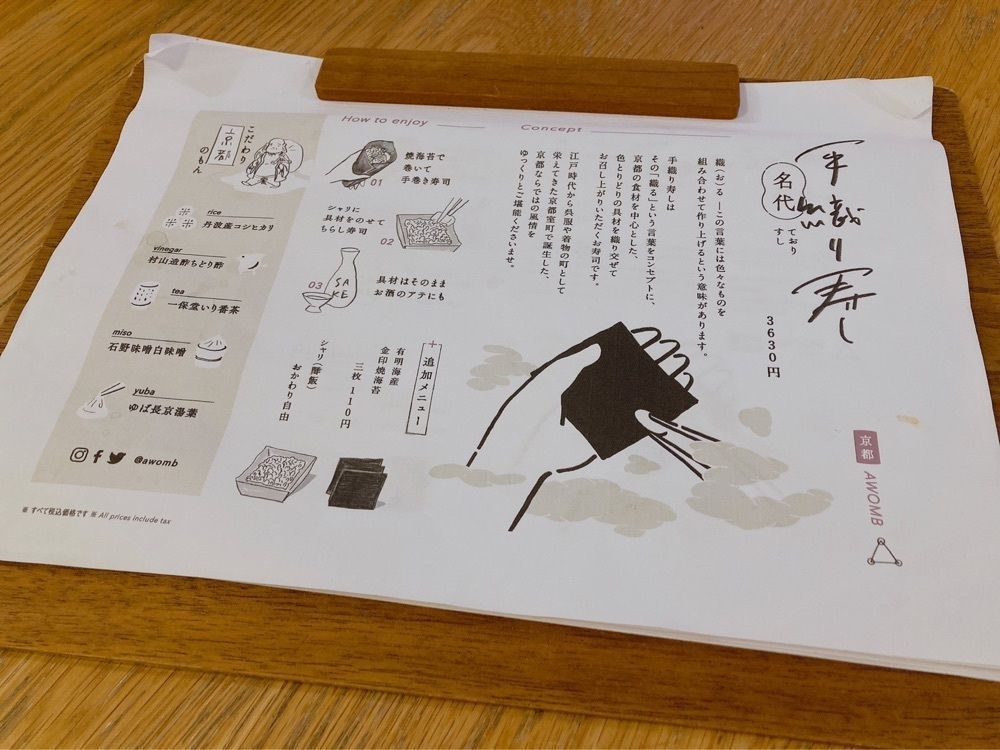 手織り寿し
名代
ており
すし
3630円
京都
AWOMB
Concept
織（お）る ―この言葉には色々なものを
組み合わせて作り上げるという意味があります。
手織り寿しは
その「織る」という言葉をコンセプトに、
京都の食材を中心とした、
色とりどりの具材を織り交ぜて
お召し上がりいただくお寿司です。
江戸時代から呉服や着物の町として
栄えてきた京都室町で誕生した、
京都ならではの風情を
ゆっくりとご堪能くださいませ。
How to enjoy
01
焼海苔で
巻いて
手巻き寿司
02
シャリに
具材をのせて
ちらし寿司
03
SA
KE
具材はそのまま
お酒のアテにも
+追加メニュー
有明海産
金印焼海苔
三枚 110円
シャリ（酢飯）
おかわり自由
こだわり
京都
のもん
rice
丹波産コシヒカリ
vinegar
村山造酢ちどり酢
tea
一保堂いり番茶
miso
石野味噌白味噌
yuba
ゆば長京湯葉
@awomb
※ すべて税込価格です ※ All prices include tax